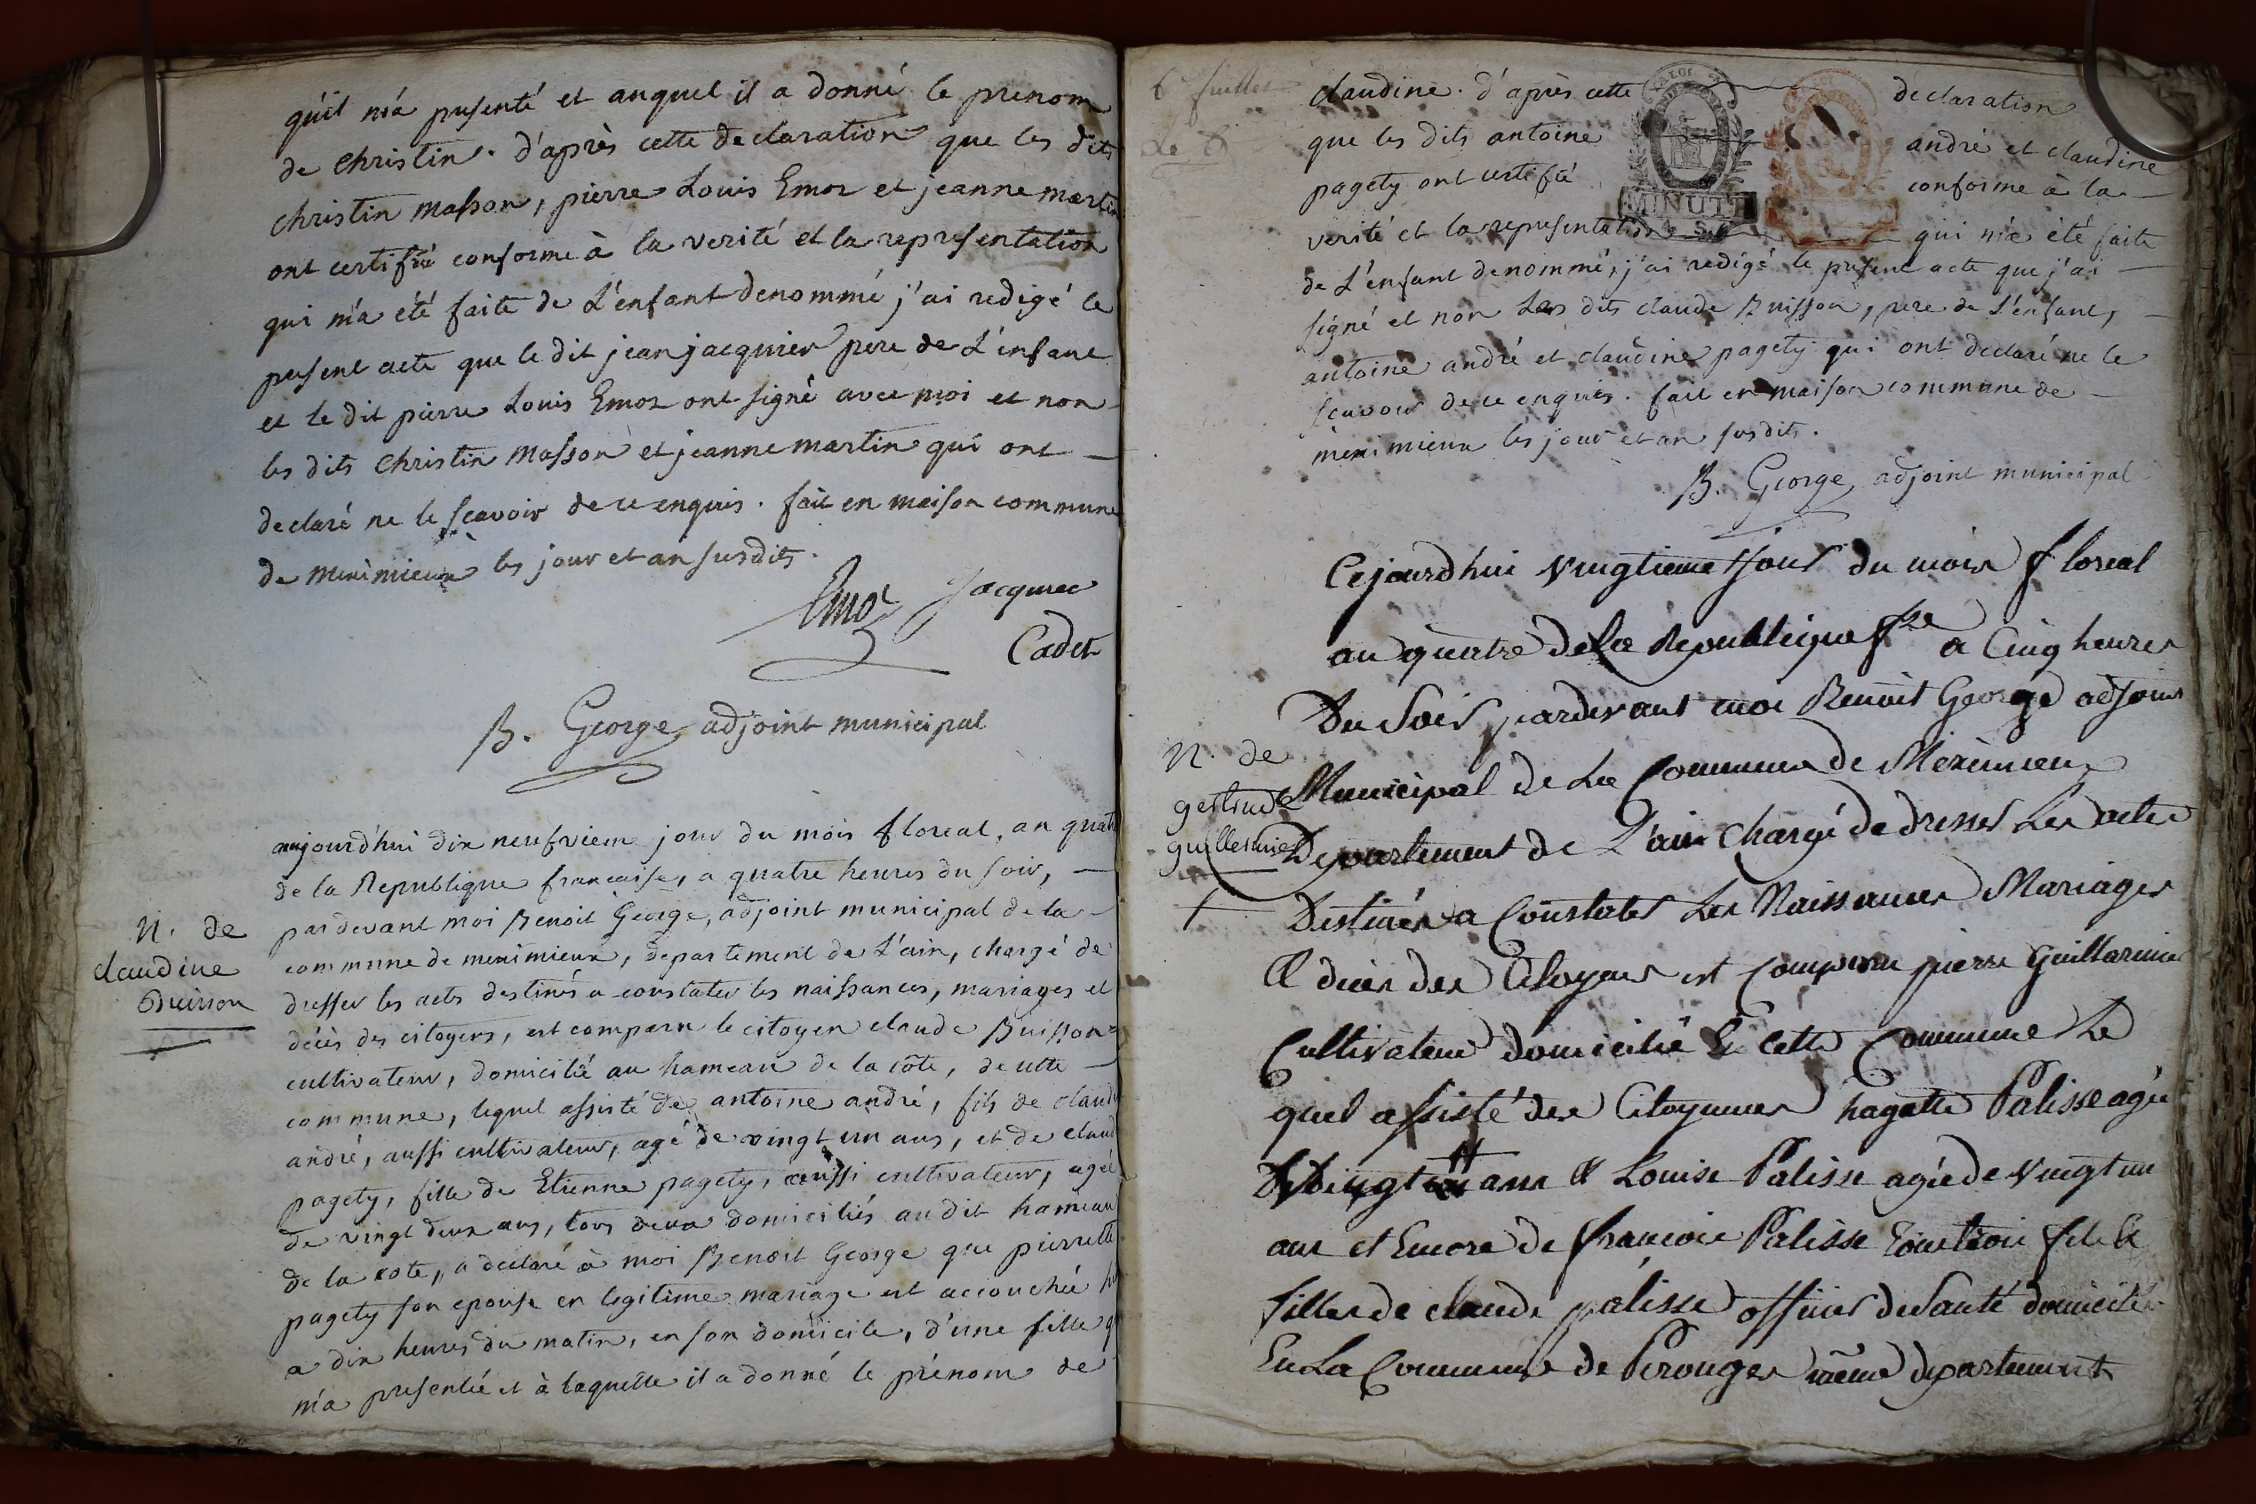 qu'il m'a presenté et auquel il a donné le prenom
de christin. d'après cette declaration que les dits
christin masson, pierre Louis Emoz et jeanne martin
ont certifié conforme à la verité et la representation
qui m'a été faite de L'enfant denommé j'ai redigé le
present acte que le dit jean jacquier pere de L'enfant
et le dit pierre Louis Emoz ont signé avec moi et non
les dits christin masson et jeanne martin qui ont
declaré ne le scavoir de ce enquis. fait en maison commune
de meximieux les jour et an susdits.
Emoz Jacquier
Cadet
B. George, adjoint municipal
N. de
claudine
Buisson
aujourd'hui dix neufviem jour du mois floreal, an quatre
de la Republique francaise, a quatre heures du soir,
pardevant moi Benoit George, adjoint municipal de la
commune de meximieux, departement de L'ain, chargé de
dresser les actes destinés a constater les naissances, mariages et
décès des citoyens, est comparu le citoyen claude Buisson
cultivateur, domicilié au hameau de la côte, de cette
commune, lequel assisté de antoine andré, fils de claude
andré, aussi cultivateur, agé de vingt un ans, et de claud
pagety, fille de Etienne pagety, aussi cultivateur, agée
de vingt deux ans, tous deux domiciliés au dit hameau
de la cote, a declaré à moi Benoit George que pierrette
pagety son epouse en legitime mariage est accouchée
a dix heures du matin, en son domicile, d'une fille
m'a presentée et à laquelle il a donné le prénom de
6e feuillet
claudine. d'après cette declaration
que les dits antoine andré et claudine
pagety ont certifié conforme à la
MINUTE
verité et la representation qui m'a été faite
de L'enfant denommé, j'ai redigé le present acte que j'ai
signé et non Les dits claude Buisson, pere de L'enfant,
antoine andré et claudine pagety qui ont declaré ne le
scavoir de ce enquis. fait en maison commune de
meximieux les jour et an susdits.
B. George, adjoint municipal
N. de
gertrude
guillermier
Cejourdhui vingtieme Jour du mois floreal
an quatre de la Republique fse a Cinq heures
Du Soir pardevant moi Benoit George adjoint
Municipal de La Commune de Meximieux
Departement de L'ain Chargé de dresser Les actes
Destinés a Constater Les Naissances Mariages
& deces des Citoyens est comparu pierre Guillarmier
Cultivateur domicilié En cette Commune Le
quel assisté des Citoyennes hagatte Palisse agée
de vingt ans & Louise Palisse agée de vingt un
ans et Encore de francois Palisse Tous trois fils &
filles de claude palisse officier de Santé domiciliés
En La Commune de Perouges même departement